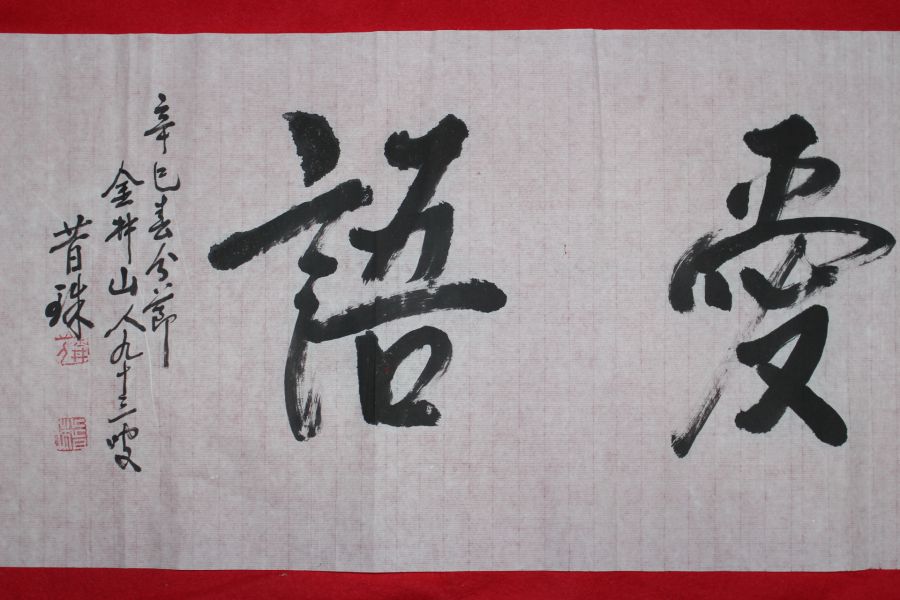 愛語
辛巳春分節
金井山人九十三叟
昔珠